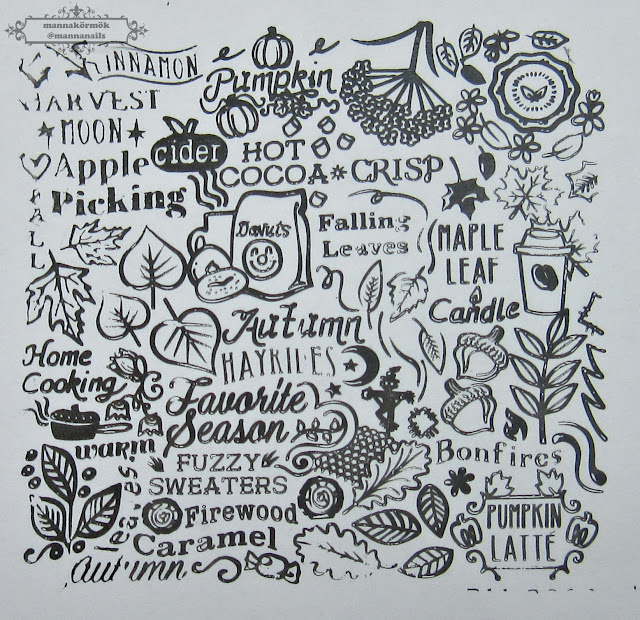 mannakörmök
@mannanails
INNAMON
Pumpkin
HARVEST
MOON
Apple cider
Picking
HOT
COCOA CRISP
FALL
Donuts
Falling
Leaves
MAPLE
LEAF
Candle
Autumn
HAYRIDES
Home
Cooking
Favorite
Season
warm
FUZZY
SWEATERS
leaves
Bonfires
Firewood
PUMPKIN
LATTE
Caramel
autumn